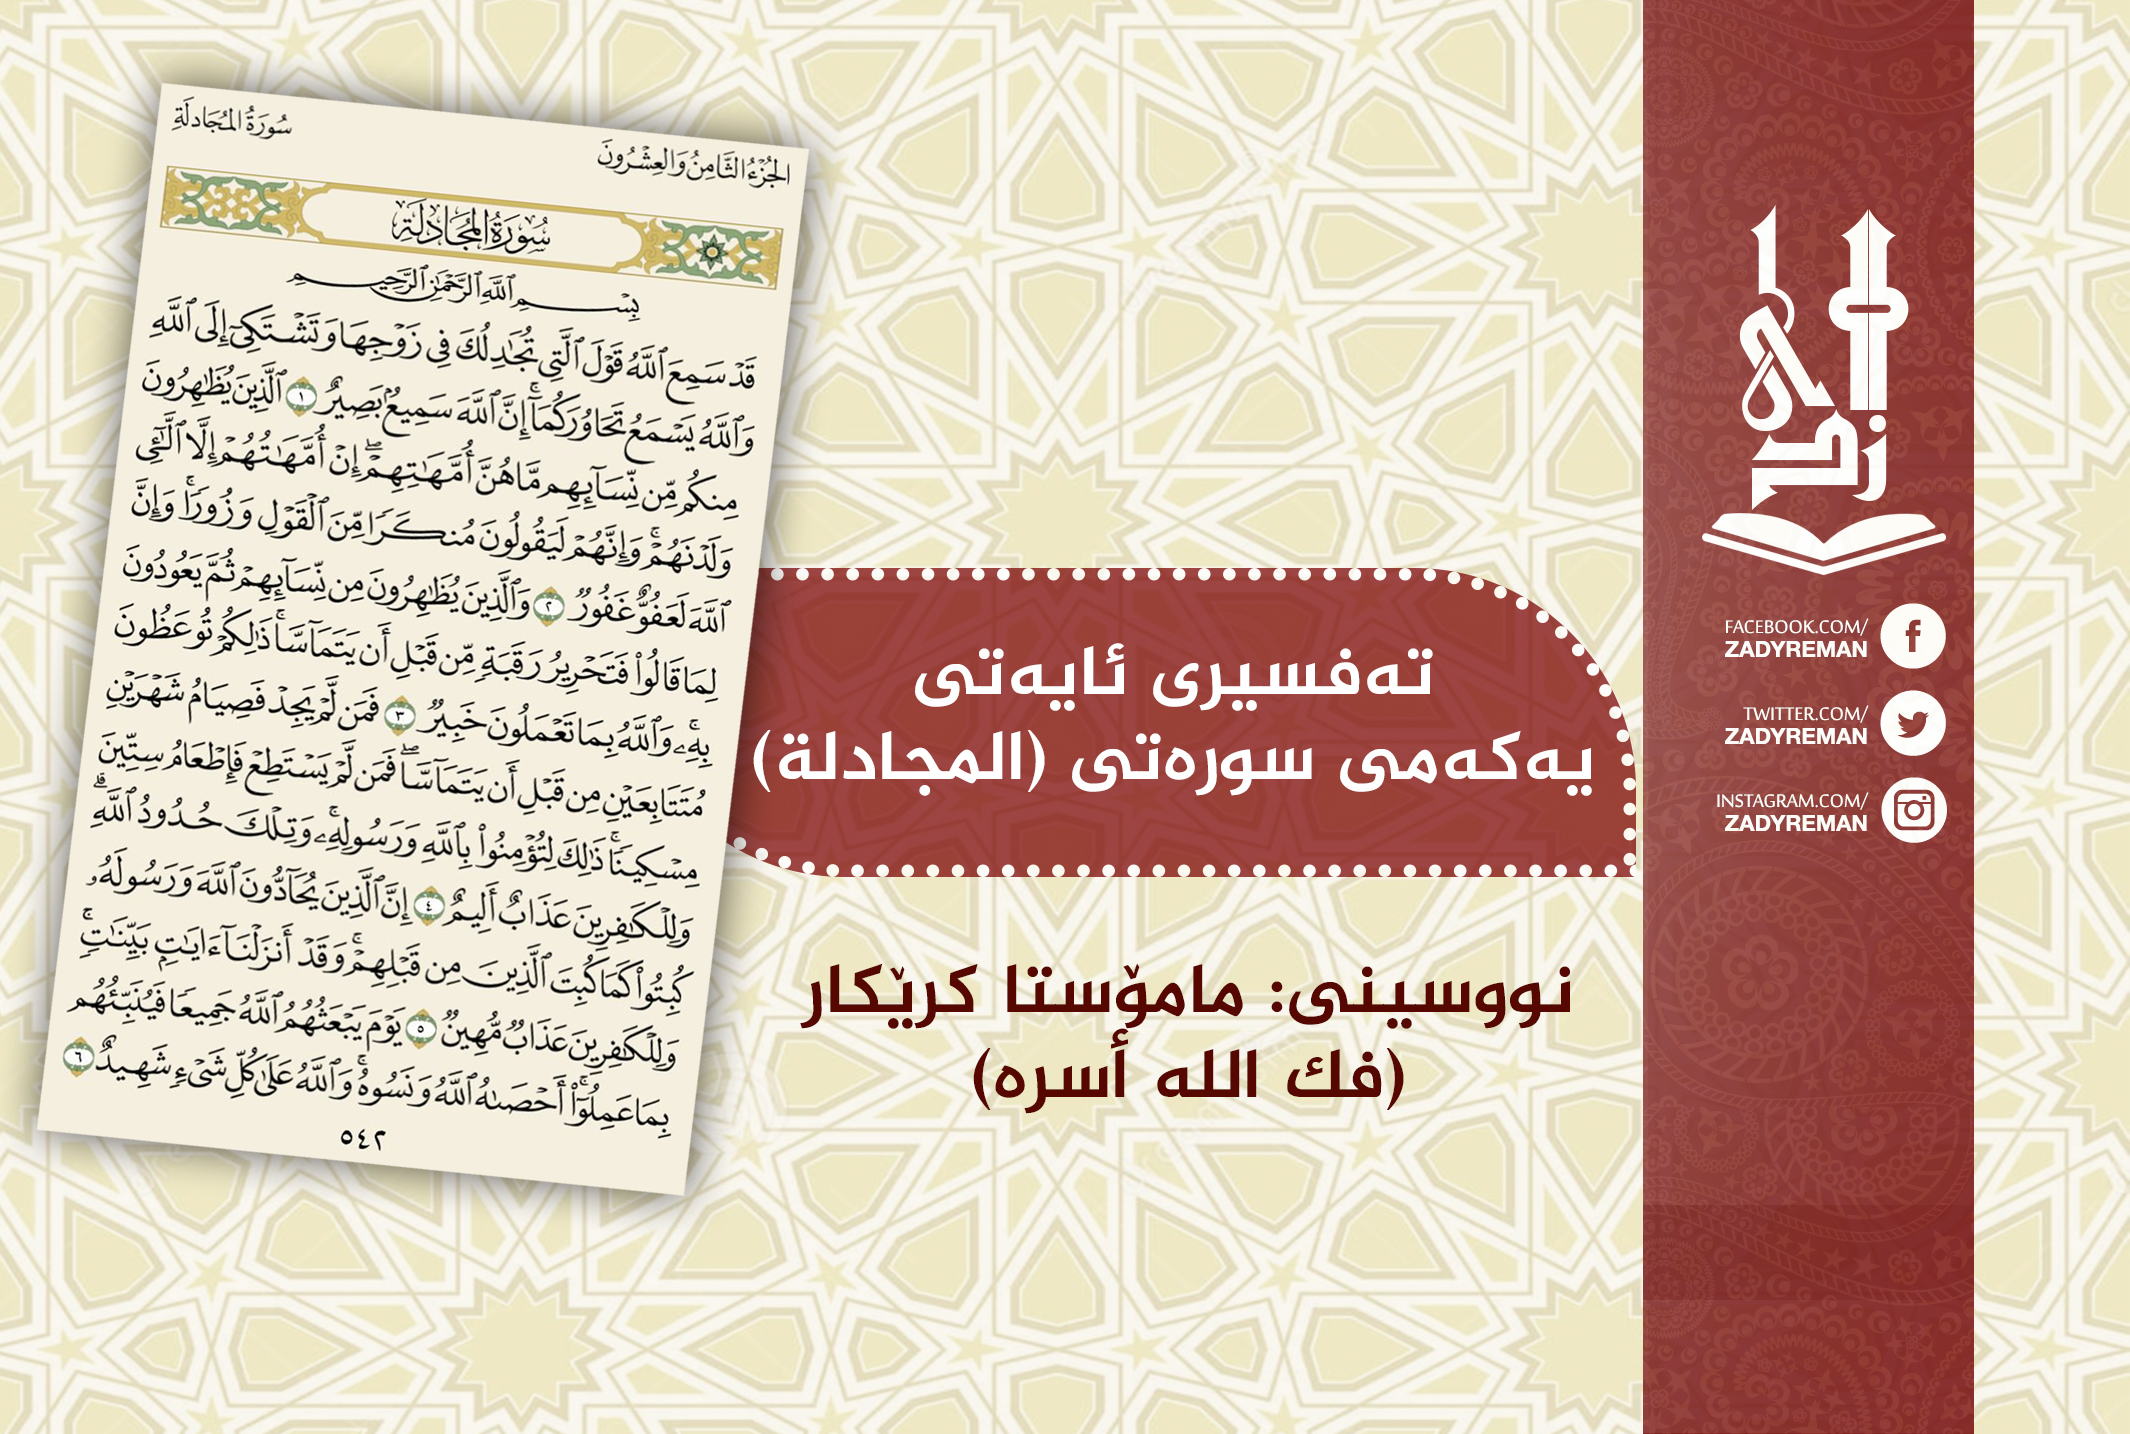 سُورَةُ المُجَادلَةِ
الجُزْءُ الثَّامِنُ وَالعِشْرُونَ
سُورَةُ المُجَادلَةِ
بِسْمِ ٱللَّهِ ٱلرَّحْمَٰنِ ٱلرَّحِيمِ
قَدْ سَمِعَ ٱللَّهُ قَوْلَ ٱلَّتِي تُجَٰدِلُكَ فِي زَوْجِهَا وَتَشْتَكِيٓ إِلَى ٱللَّهِ
وَٱللَّهُ يَسْمَعُ تَحَاوُرَكُمَآۚ إِنَّ ٱللَّهَ سَمِيعُۢ بَصِيرٌ ١ ٱلَّذِينَ يُظَٰهِرُونَ
مِنكُم مِّن نِّسَآئِهِم مَّا هُنَّ أُمَّهَٰتِهِمْۖ إِنْ أُمَّهَٰتُهُمْ إِلَّا ٱلَّٰٓـِٔي
وَلَدْنَهُمْۚ وَإِنَّهُمْ لَيَقُولُونَ مُنكَرًا مِّنَ ٱلْقَوْلِ وَزُورًاۚ وَإِنَّ
ٱللَّهَ لَعَفُوٌّ غَفُورٌ ٢ وَٱلَّذِينَ يُظَٰهِرُونَ مِن نِّسَآئِهِمْ ثُمَّ يَعُودُونَ
لِمَا قَالُوا۟ فَتَحْرِيرُ رَقَبَةٍ مِّن قَبْلِ أَن يَتَمَآسَّاۚ ذَٰلِكُمْ تُوعَظُونَ
بِهِۦۚ وَٱللَّهُ بِمَا تَعْمَلُونَ خَبِيرٌ ٣ فَمَن لَّمْ يَجِدْ فَصِيَامُ شَهْرَيْنِ
مُتَتَابِعَيْنِ مِن قَبْلِ أَن يَتَمَآسَّاۖ فَمَن لَّمْ يَسْتَطِعْ فَإِطْعَامُ سِتِّينَ
مِسْكِينًاۚ ذَٰلِكَ لِتُؤْمِنُوا۟ بِٱللَّهِ وَرَسُولِهِۦۚ وَتِلْكَ حُدُودُ ٱللَّهِۗ
وَلِلْكَٰفِرِينَ عَذَابٌ أَلِيمٌ ٤ إِنَّ ٱلَّذِينَ يُحَآدُّونَ ٱللَّهَ وَرَسُولَهُۥ
كُبِتُوا۟ كَمَا كُبِتَ ٱلَّذِينَ مِن قَبْلِهِمْۚ وَقَدْ أَنزَلْنَآ ءَايَٰتِۭ بَيِّنَٰتٍۚ
وَلِلْكَٰفِرِينَ عَذَابٌ مُّهِينٌ ٥ يَوْمَ يَبْعَثُهُمُ ٱللَّهُ جَمِيعًا فَيُنَبِّئُهُم
بِمَا عَمِلُوٓا۟ۚ أَحْصَىٰهُ ٱللَّهُ وَنَسُوهُۚ وَٱللَّهُ عَلَىٰ كُلِّ شَىْءٍ شَهِيدٌ ٦
٥٤٢
تەفسیری ئایەتی
یەکەمی سورەتی (المجادلة)
نووسینی: مامۆستا کرێکار
(فك الله أسره)
زادی
FACEBOOK.COM/
ZADYREMAN
TWITTER.COM/
ZADYREMAN
INSTAGRAM.COM/
ZADYREMAN